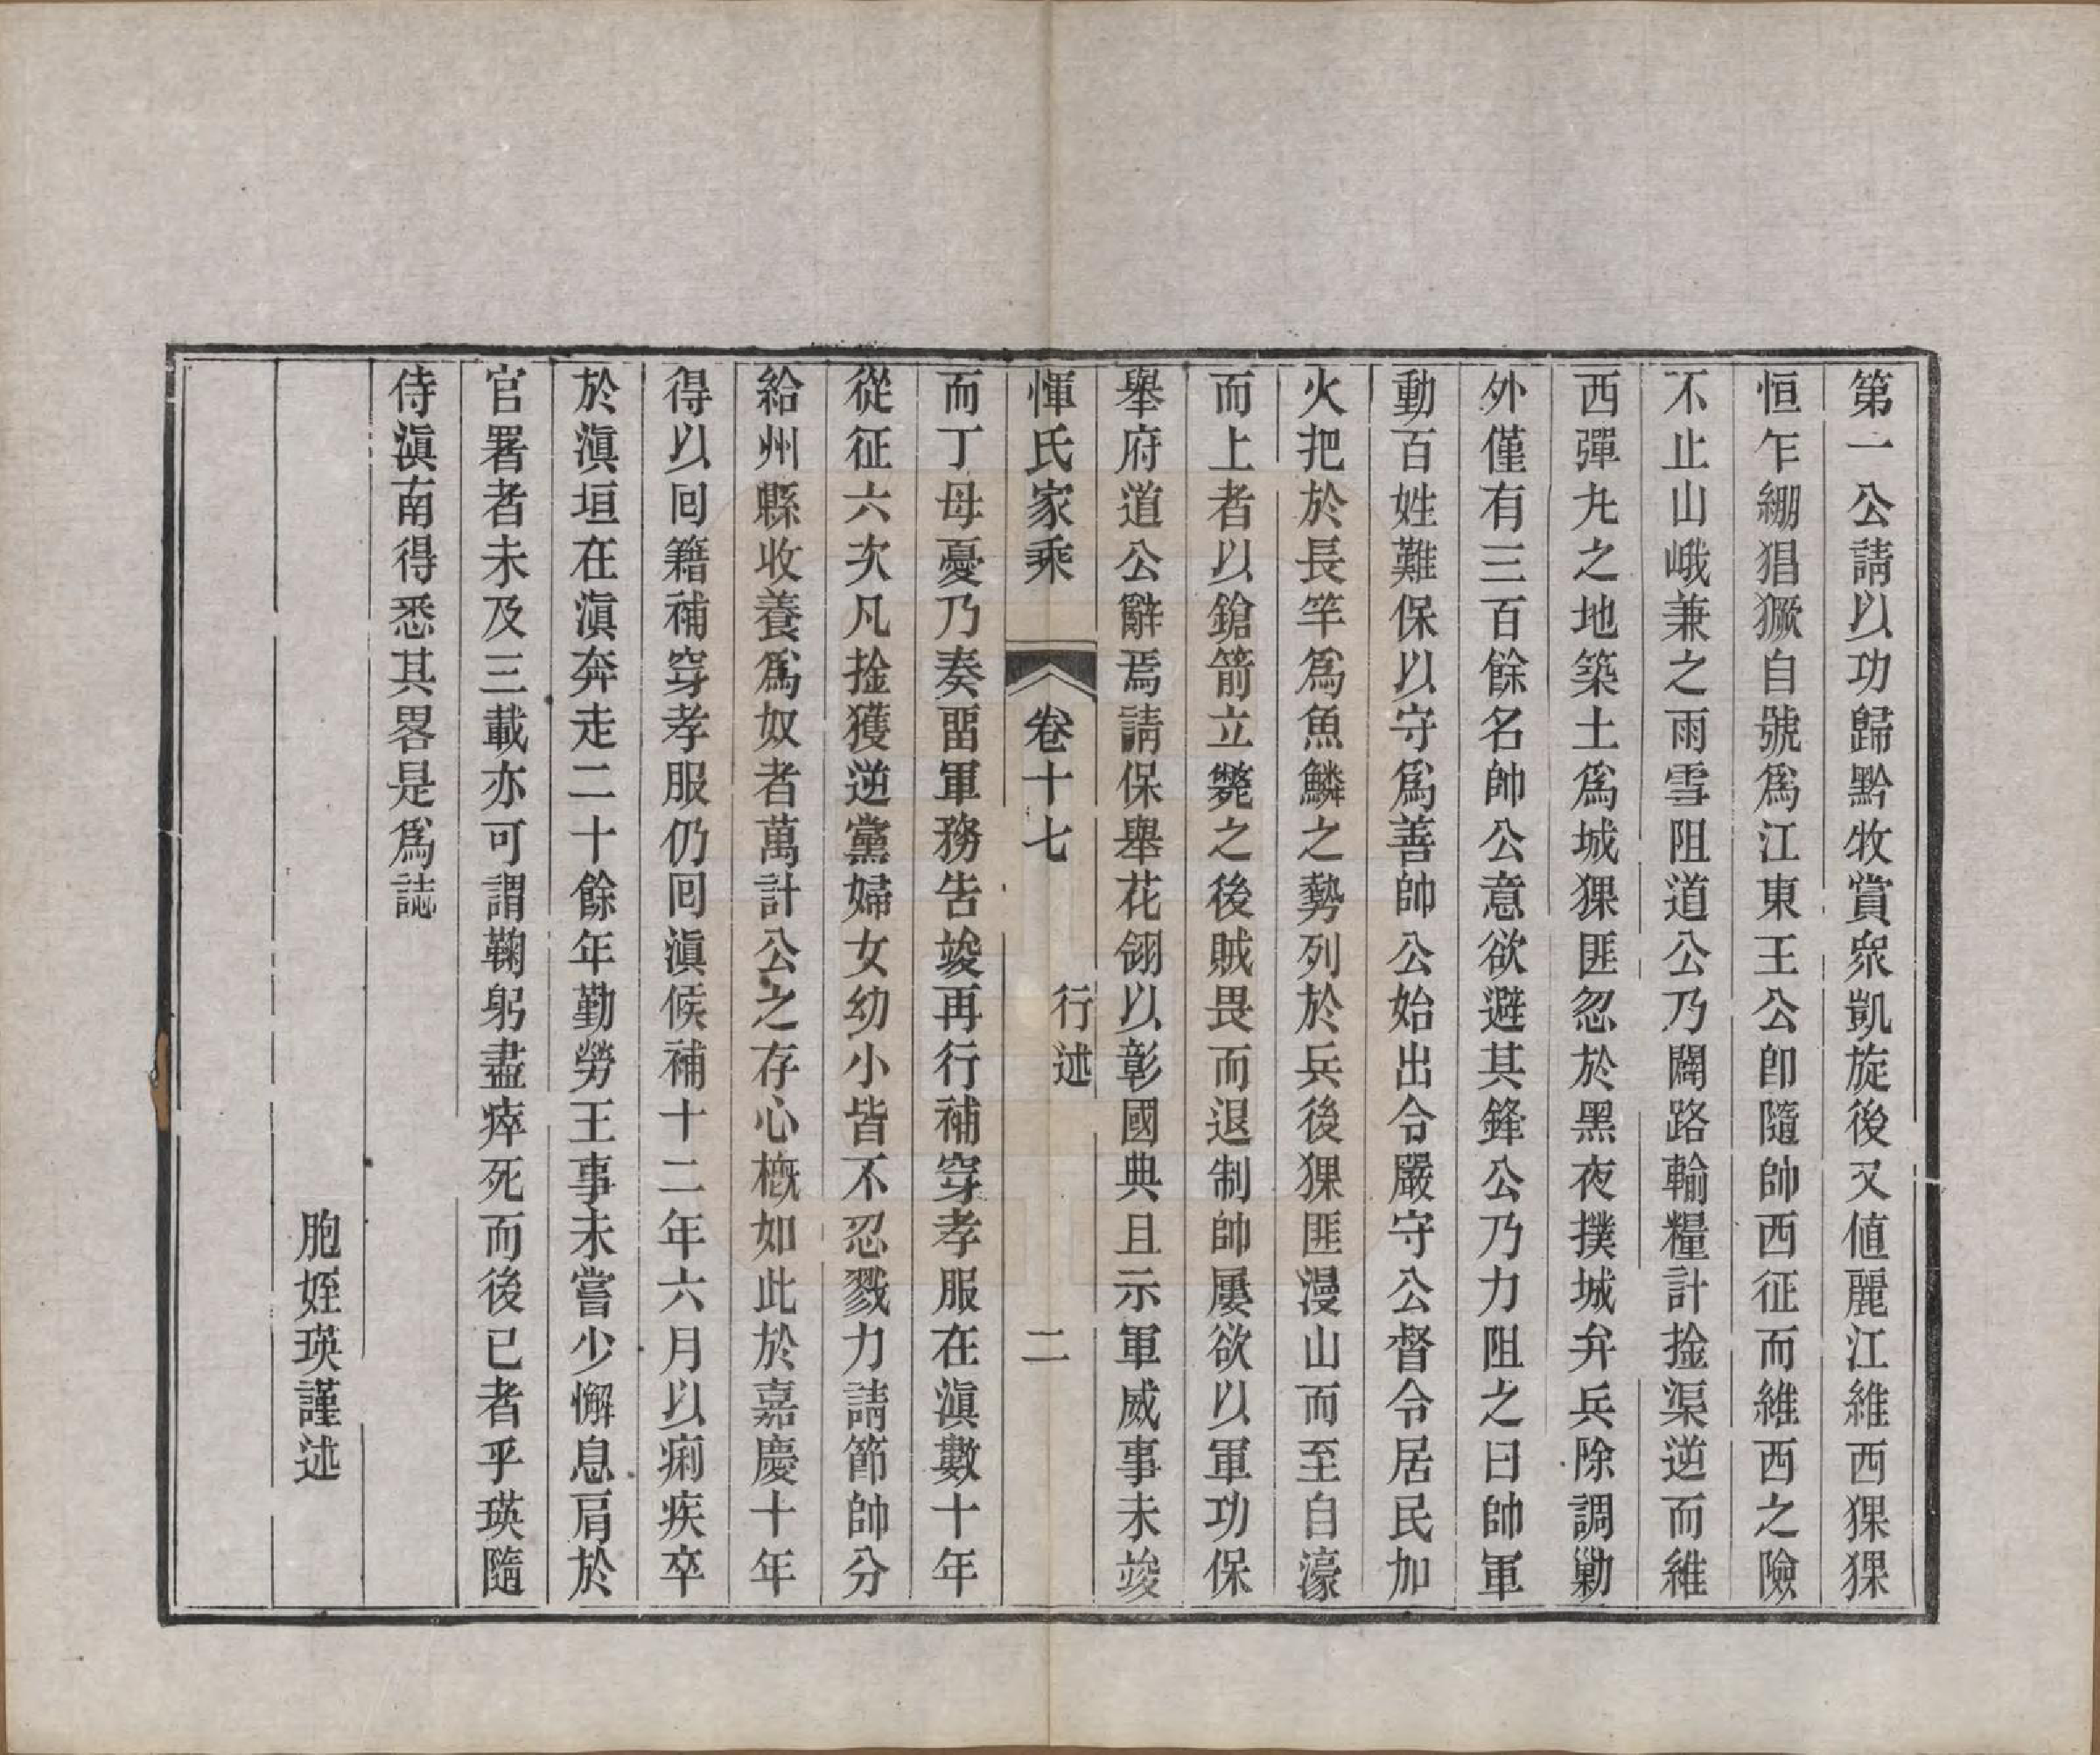 第一公請以功歸黔牧賞衆凱旋後又値麗江維西猓猓
恒乍綳猖獗自號爲江東王公卽隨帥西征而維西之險
不止山峨兼之雨雪阻道公乃闢路輸糧計捦渠逆而維
西彈丸之地築土爲城猓匪忽於黑夜撲城弁兵除調勦
外僅有三百餘名帥公意欲避其鋒公乃力阻之曰帥軍
動百姓難保以守爲善帥公始出令嚴守公督令居民加
火把於長竿爲魚鱗之勢列於兵後猓匪漫山而至自濠
而上者以鎗箭立斃之後賊畏而退制帥屢欲以軍功保
舉府道公辭焉請保舉花翎以彰國典且示軍威事未竣
惲氏家乘 卷十七 行述 二
而丁母憂乃奏畱軍務吿竣再行補穿孝服在滇數十年
從征六次凡捦獲逆黨婦女幼小皆不忍戮力請節帥分
給州縣收養爲奴者萬計公之存心槪如此於嘉慶十年
得以回籍補穿孝服仍回滇候補十二年六月以痢疾卒
於滇垣在滇奔走二十餘年勤勞王事未嘗少懈息肩於
官署者未及三載亦可謂鞠躬盡瘁死而後已者乎瑛隨
侍滇南得悉其畧是爲誌
胞姪瑛謹述